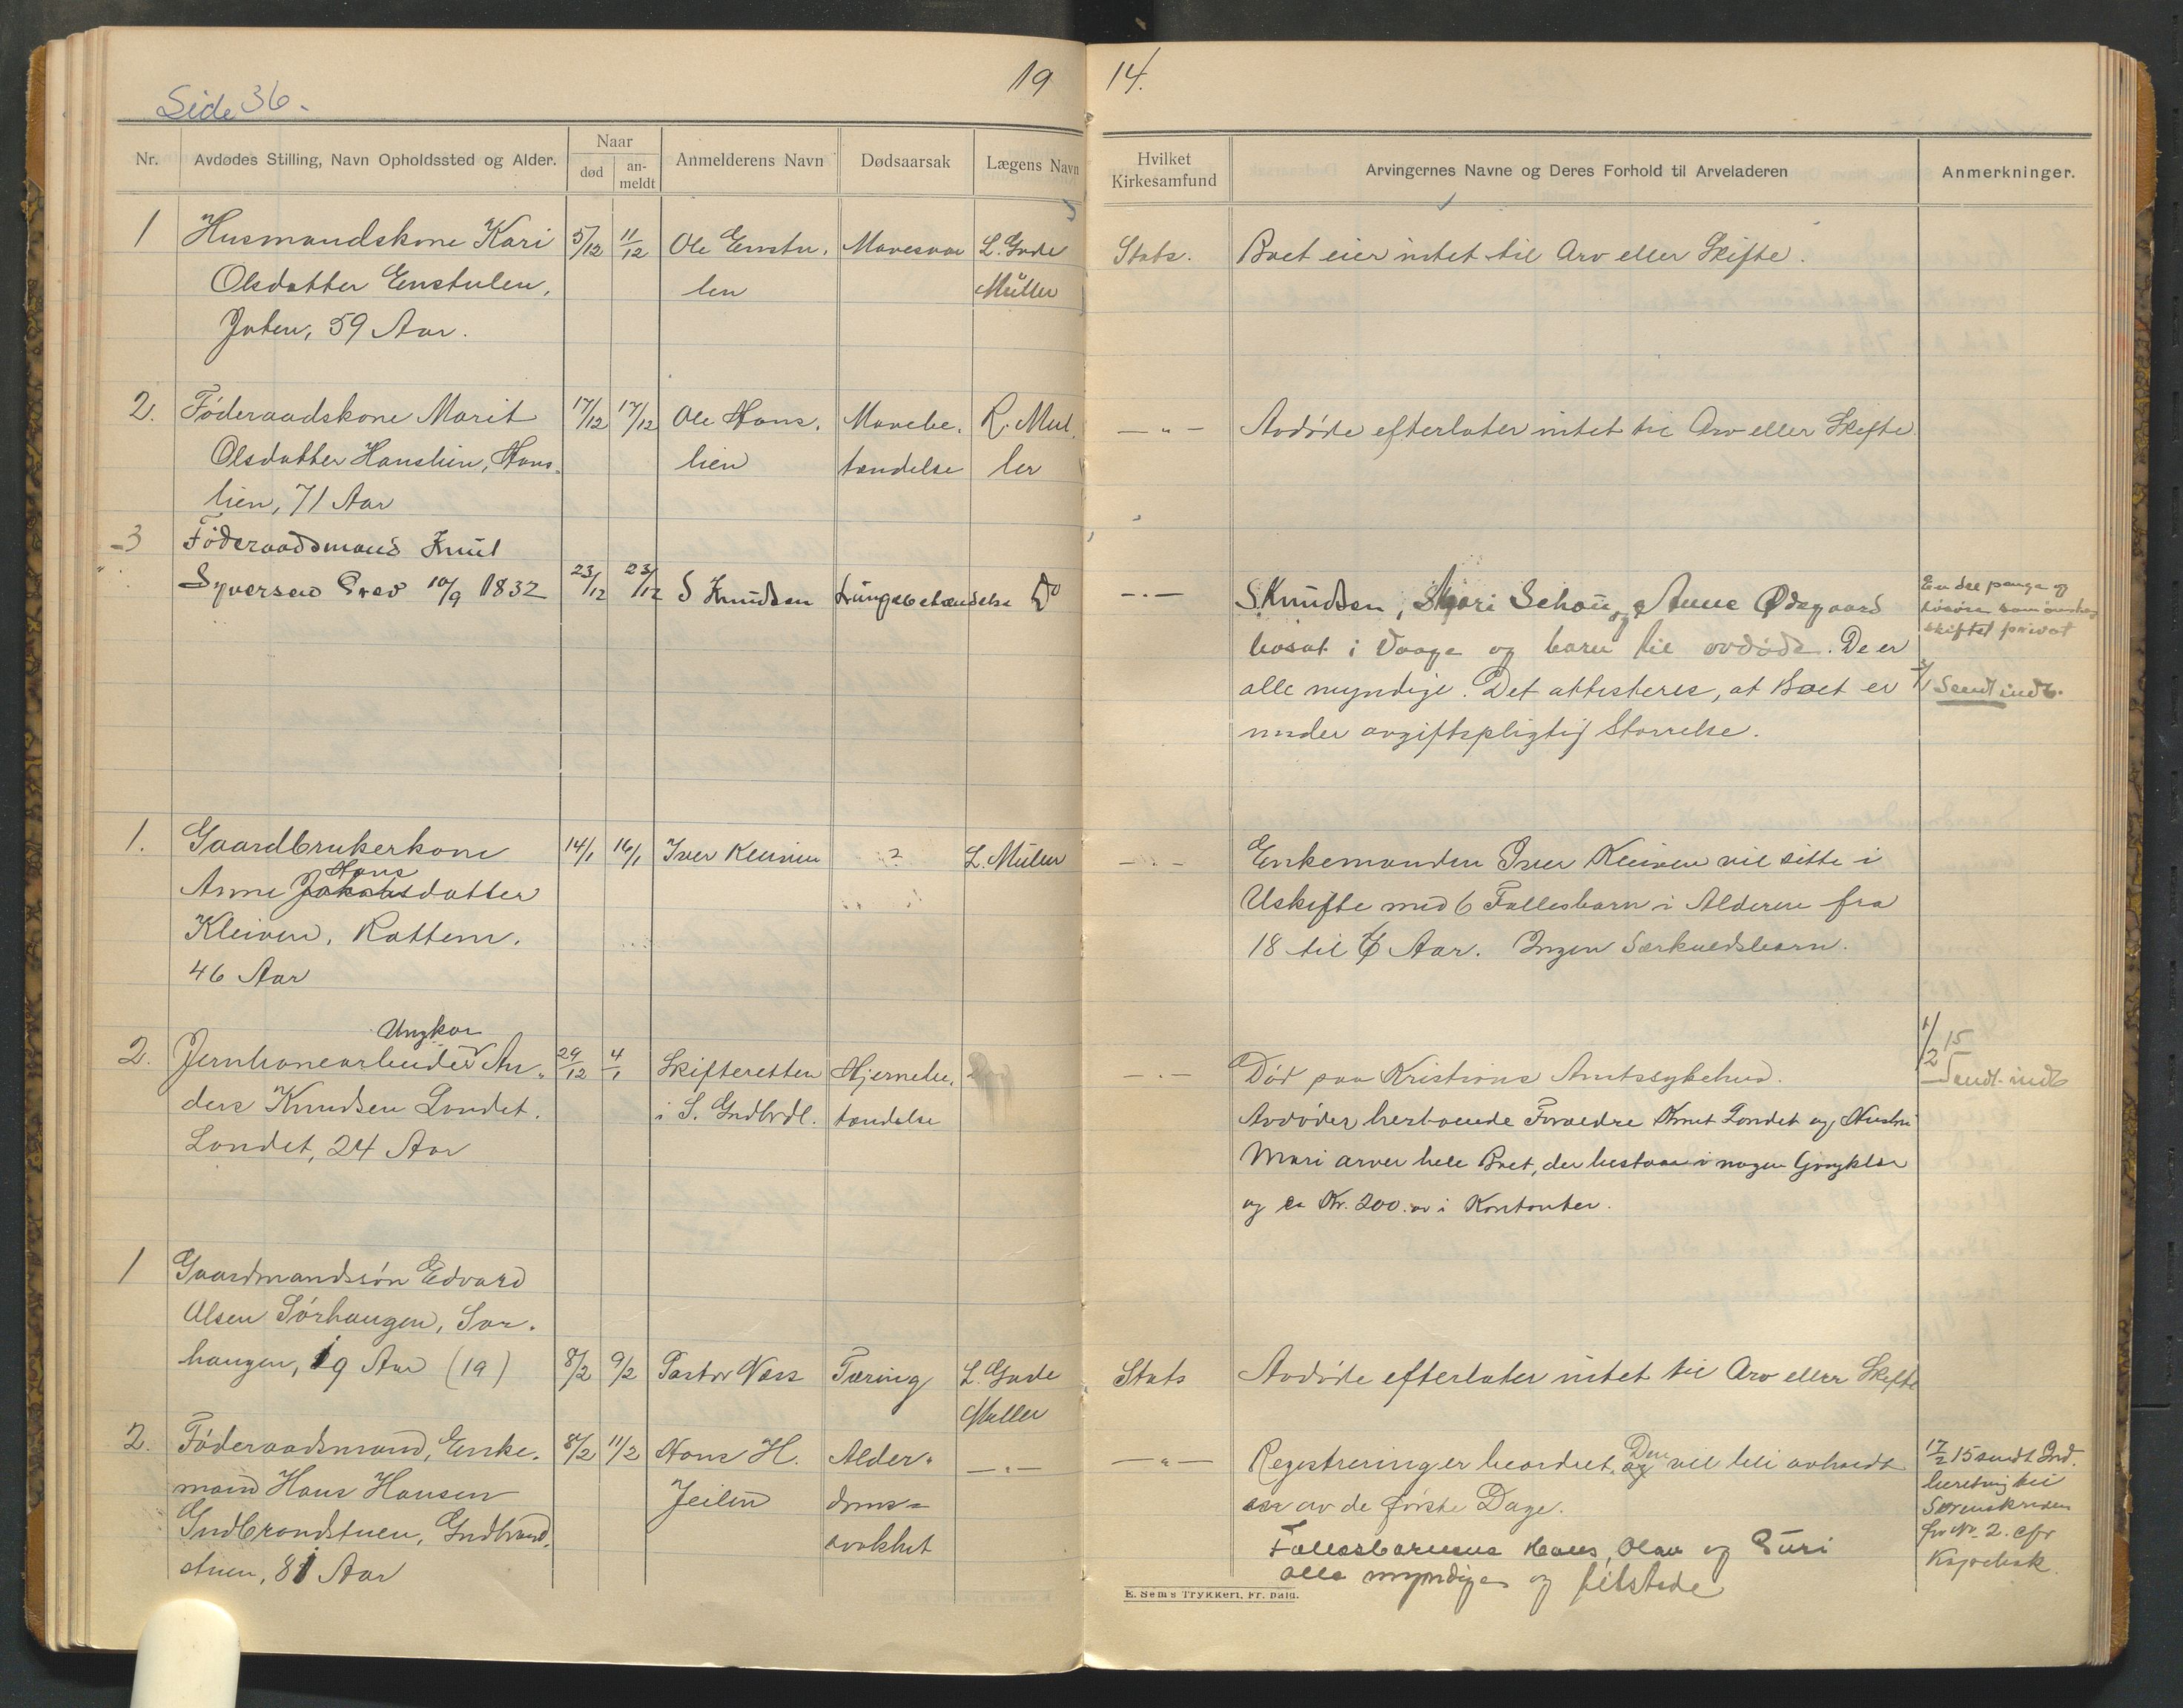 Side 36.
19 14.
Nr.
Avdødes Stilling, Navn Opholdssted og Alder.
Naar
død
an-
meldt
Anmelderens Navn
Dødsaarsak
Lægens Navn
Hvilket
Kirkesamfund
Arvingernes Navne og Deres Forhold til Arveladeren
Anmerkninger.
1 Husmandskone Kari 5/12 11/12 Ole Enstu- Mavesaar L. Gude Stats. Boet eier intet til Arv eller Skifte.
Olsdatter Enstulen, len Müller
59 Aar.
2. Föderaadskone Marit 17/12 17/12 Ole Hans- Mavebe- R. Mul- —„— Avdøde efterlater intet til Arv eller Skifte
Olsdatter Hanslien, Hans- lien tændelse ler
lien, 71 Aar
3 Föderaadsmand Knut
Syversen 10/9 1832 23/12 23/12 S Knudsen Lungebetændelse Do —„— S. Knudsen, Mari Schou, og Anne Ødegaard
En del penge og
skiftet privat
bosat i Vaage og barn til avdøde. De er
alle myndige. Det attesteres, at Boet er 3/1 Sendt indb.
under avgiftspligtig Størrelse.
1. Gaardbrukerkone 14/1 16/1 Iver Kleiven ? L. Müller —„— Enkemanden Iver Kleiven vil sitte i
Hans
Anne Jakobsdatter Uskifte med 6 Fællesbarn i Alderen fra
Kleiven, Rottem. 18 til 6 Aar. Ingen Særkuldsbarn.
46 Aar
Ungkar
2. Jernbanearbeider An- 29/12 4/1 Skifteretten Hjernebe- —„— Død paa Kristians Amtssykehus. 1/2 15 Sendt indb
ders Knudsen Londet. i S. Gudbrdl. tændelse Avdødes herboende Forældre Knut Londet og Hustru
Londet, 24 Aar Mari arver hele Boet, der bestaar i nogen Gangklær
og ca Kr. 200.00 i Kontanter.
1 Gaardmandssön Edvard
Olsen Sörhaugen, Sør-
haugen, 19 Aar (19) 8/2 9/2 Pastor Næss Tæring L. Gude Stats Avdøde efterlater intet til Arv eller Skifte
Müller
2. Föderaadsmand, Enke- 8/2 11/2 Hans H. Alder- —„— —„— Registrering er beordret, og Den vil bli avholdt 17/2 15 sendt Ind-
mand Hans Hansen Jeilen doms- en av de første Dage. beretning til
Gudbrandstuen, Gudbrand- svakhet Sorenskriveren
stuen, 81 Aar Fællesbarnene Hans, Olav og Guri for No. 2. cfr
alle myndige og tilstede Kopibok.
E. Sems Trykkeri, Fr. hald.